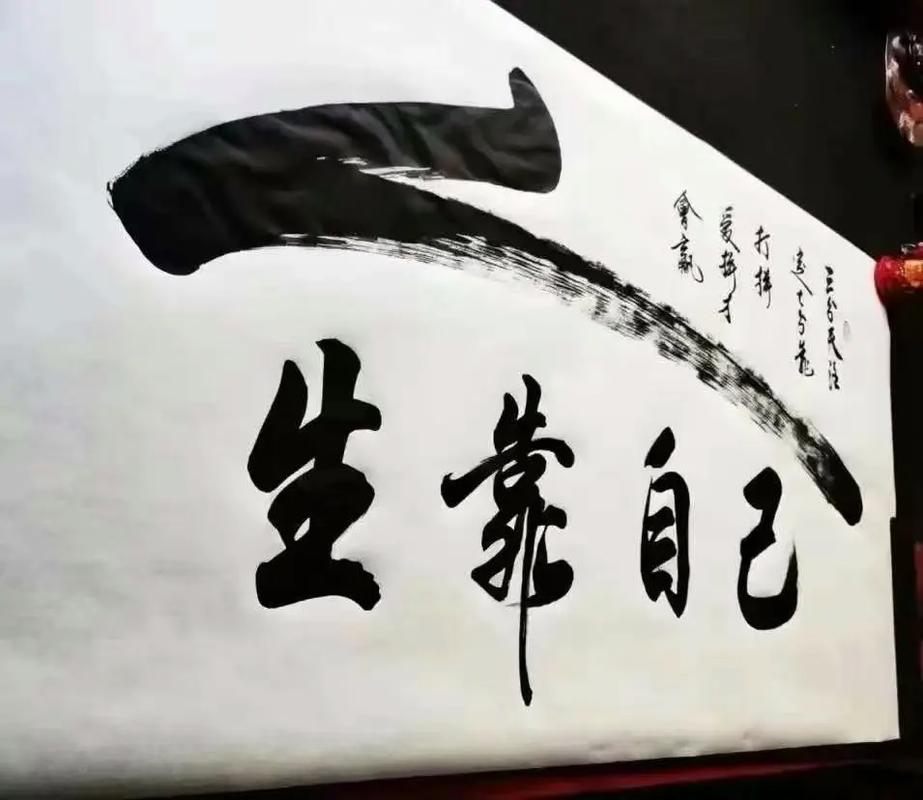 人生靠自己
三分天注
定七分靠
打拼
爱拼才
會赢